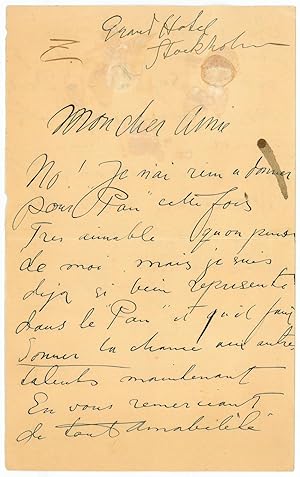 Grand Hotel
Stockholm
Z.
Mon cher Amie
No! Je n'ai rien a donner
pour "Pan" cette fois
Tres aimable qu'on pense
de moi mais je suis
deja si bien representé
dans le "Pan" et qu'il faut
donner la chance aux autre
talents maintenant
En vous remerciant
de tout amabilèlè